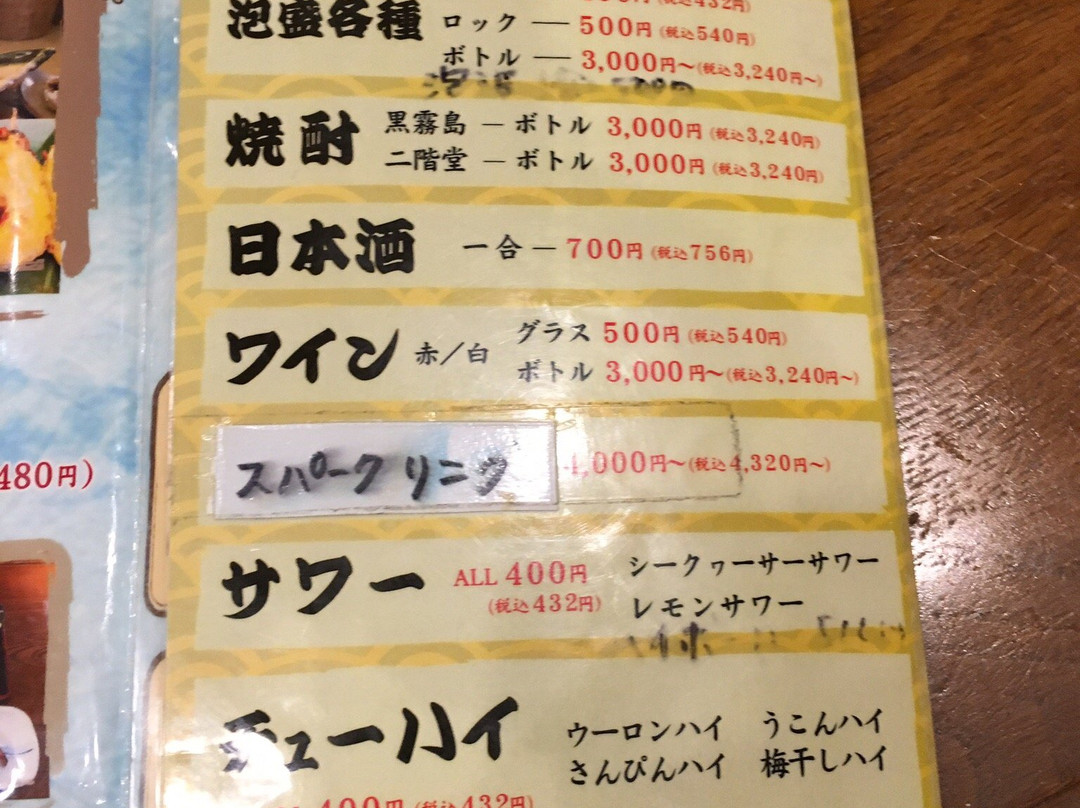 泡盛各種 ロック — 500円 (税込540円)
ボトル — 3,000円〜(税込3,240円〜)
焼酎 黒霧島 — ボトル 3,000円 (税込3,240円)
二階堂 — ボトル 3,000円 (税込3,240円)
日本酒 一合 — 700円 (税込756円)
ワイン 赤/白 グラス 500円 (税込540円)
ボトル 3,000円〜(税込3,240円〜)
スパークリング 4,000円〜(税込4,320円〜)
480円)
サワー ALL 400円 シークヮーサーサワー
(税込432円) レモンサワー
チューハイ ウーロンハイ うこんハイ
さんぴんハイ 梅干しハイ
400円 (税込432円)